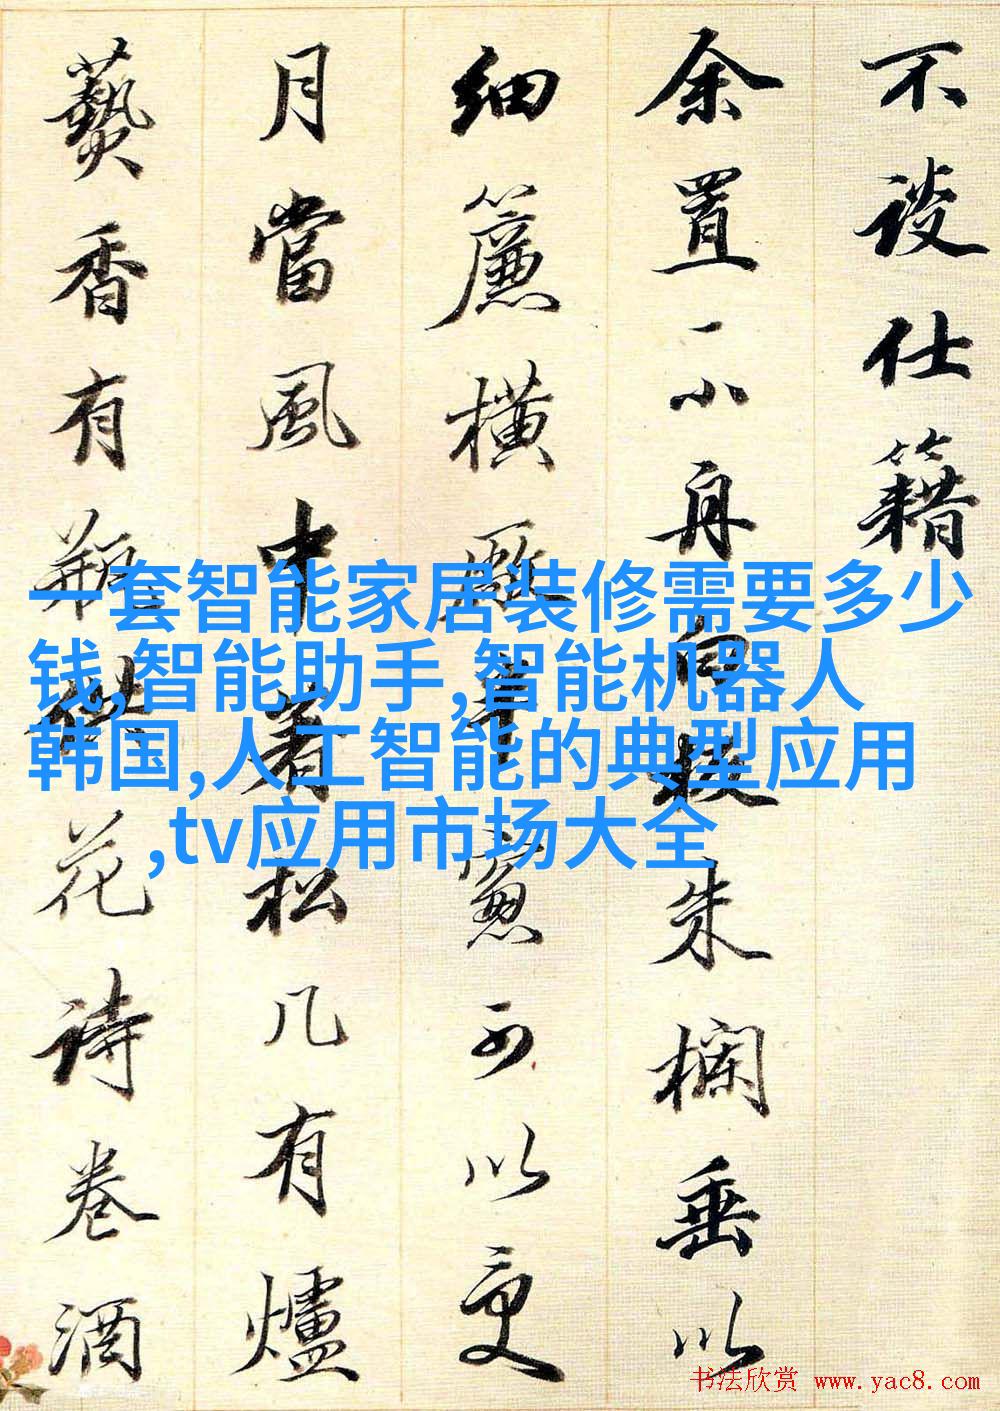 不談仕籍
余置一小舟白板朱欄垂以
細簾橫窻可以更
月當風中着松几有爐
爇香有瓶供花詩卷酒
一套智能家居装修需要多少
钱,智能助手,智能机器人
韩国,人工智能的典型应用
,tv应用市场大全
书法欣赏 www.yac8.com